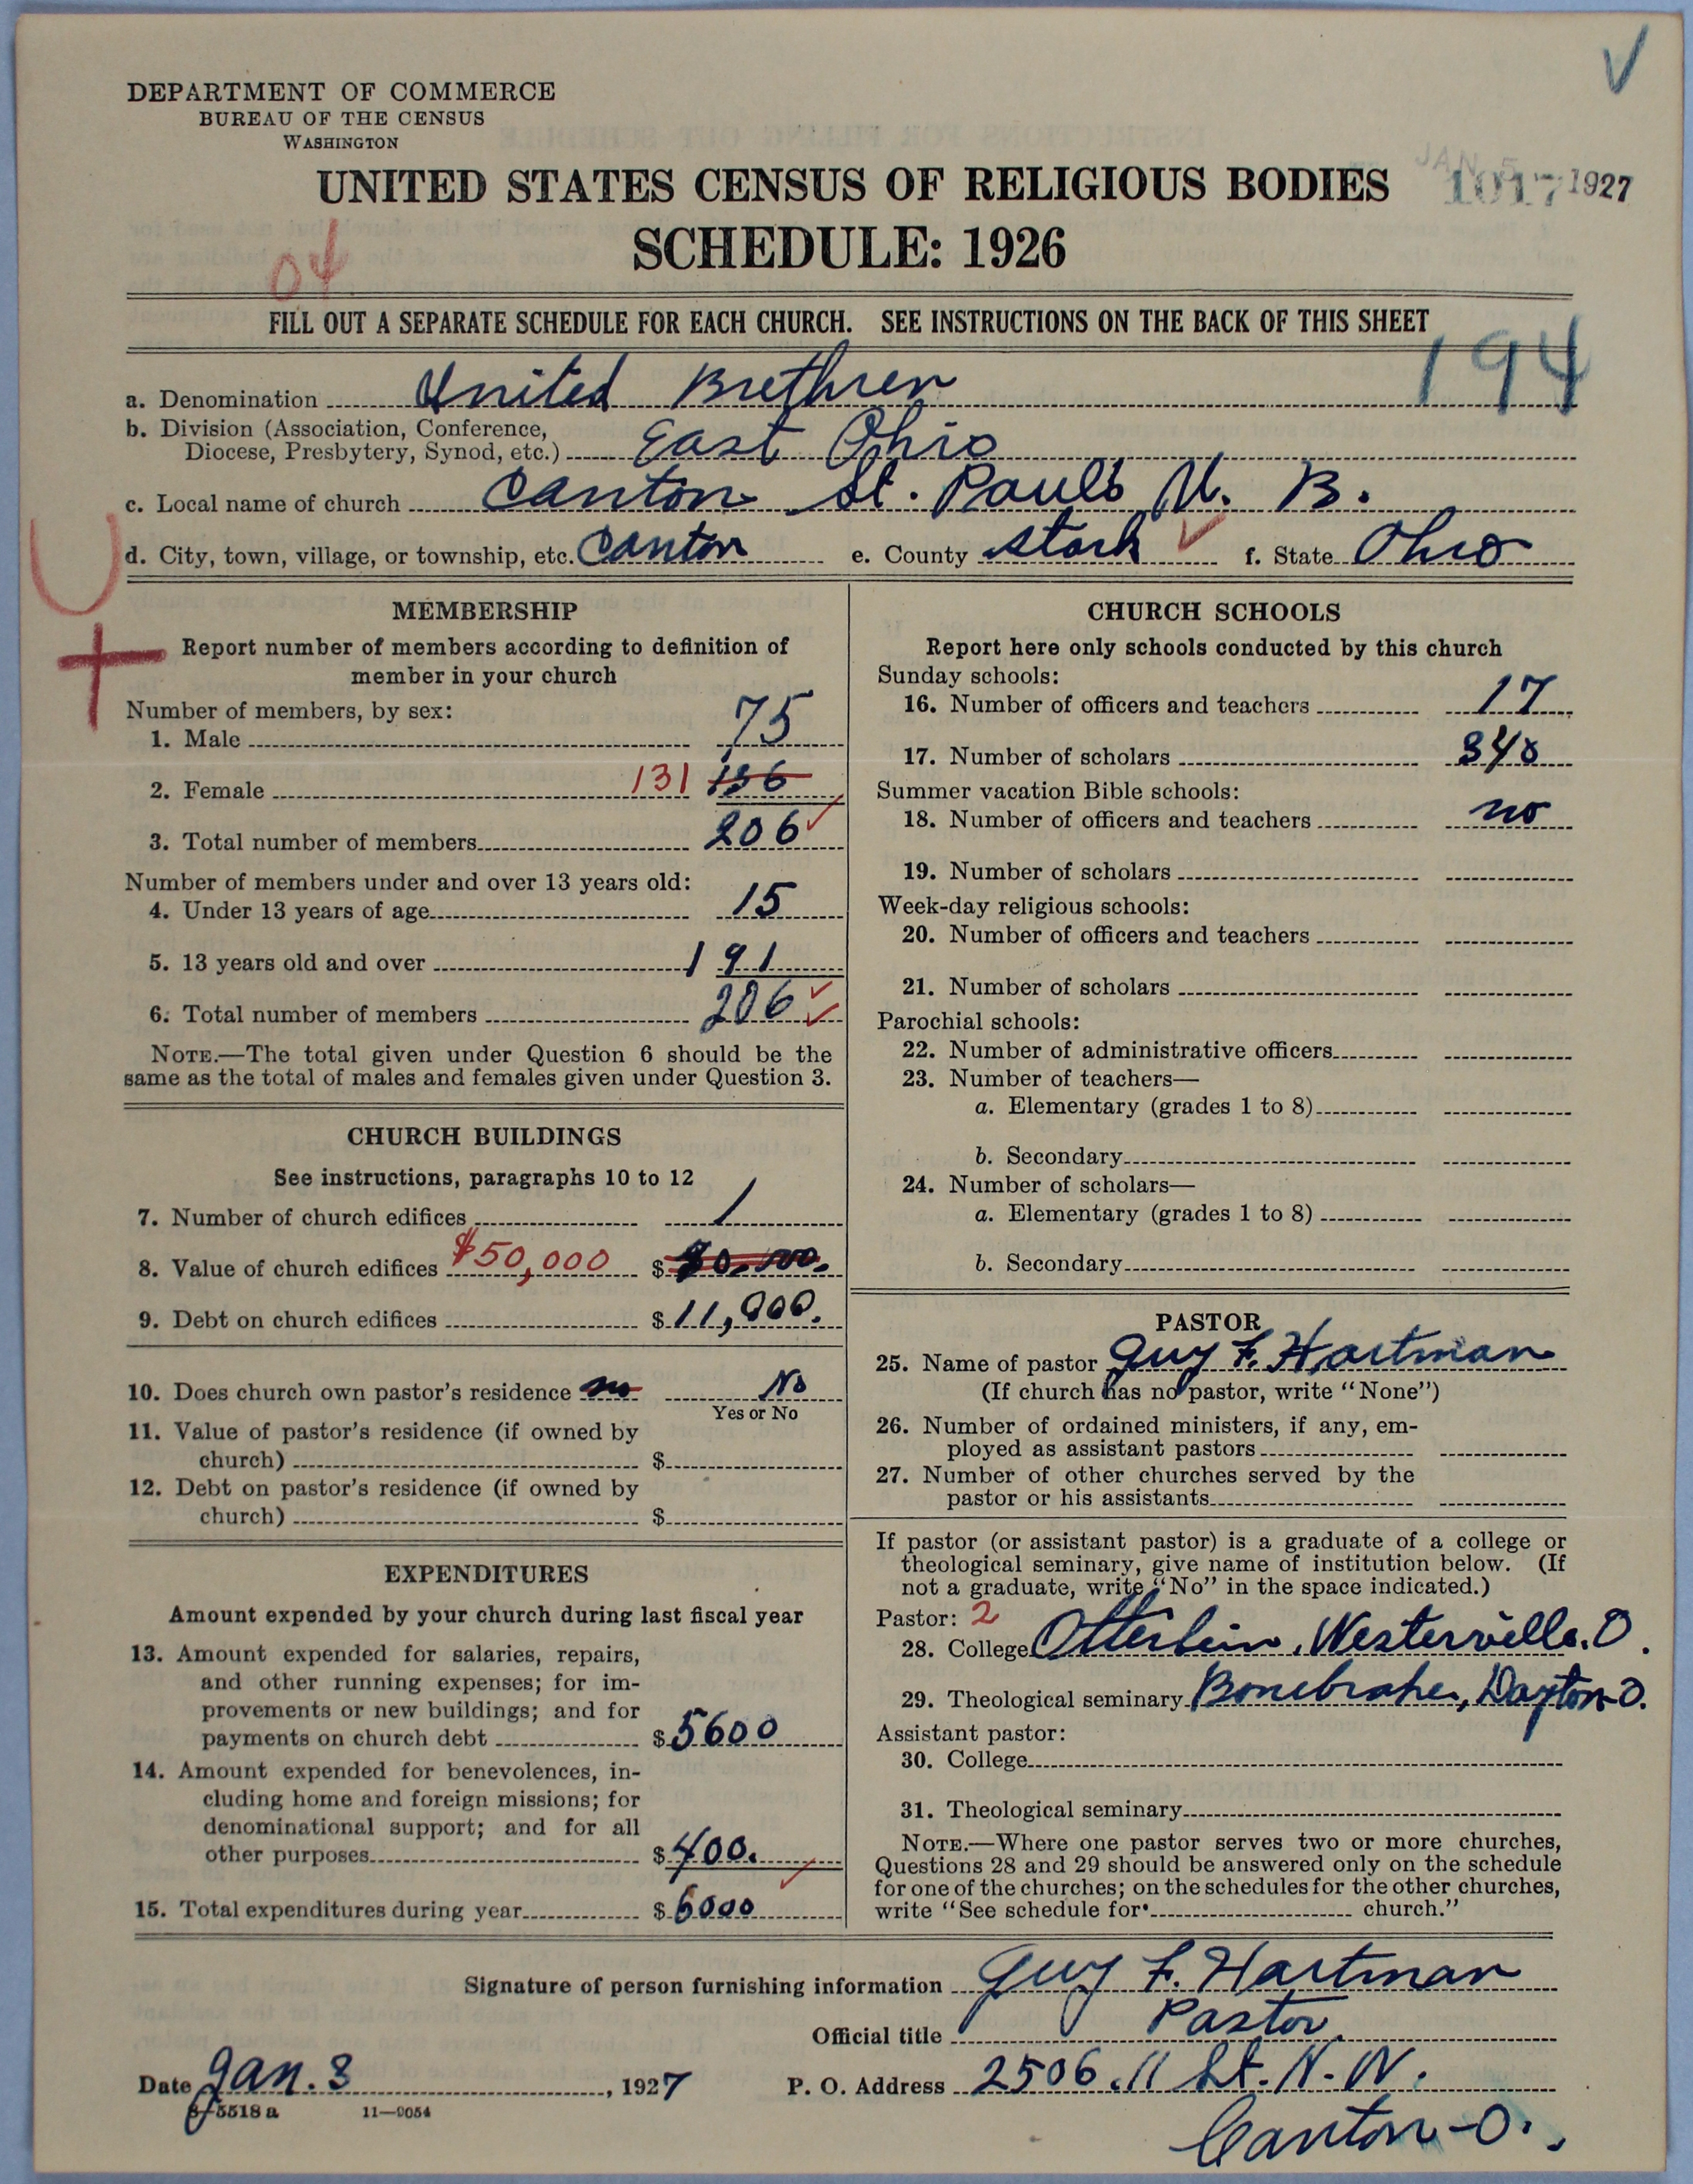 DEPARTMENT OF COMMERCE
BUREAU OF THE CENSUS
WASHINGTON
UNITED STATES CENSUS OF RELIGIOUS BODIES
JAN 5 1927
1017
SCHEDULE: 1926
04
FILL OUT A SEPARATE SCHEDULE FOR EACH CHURCH. SEE INSTRUCTIONS ON THE BACK OF THIS SHEET
194
a. Denomination United Brethren
b. Division (Association, Conference,
Diocese, Presbytery, Synod, etc.) East Ohio
c. Local name of church Canton St. Pauls U. B.
d. City, town, village, or township, etc. Canton e. County Stark f. State Ohio
MEMBERSHIP
Report number of members according to definition of
member in your church
Number of members, by sex:
1. Male 75
2. Female 131 136
3. Total number of members 206
Number of members under and over 13 years old:
4. Under 13 years of age 15
5. 13 years old and over 191
6. Total number of members 206
NOTE.—The total given under Question 6 should be the
same as the total of males and females given under Question 3.
CHURCH BUILDINGS
See instructions, paragraphs 10 to 12
7. Number of church edifices 1
8. Value of church edifices $50,000 $
9. Debt on church edifices $11,000.
10. Does church own pastor's residence no No
Yes or No
11. Value of pastor's residence (if owned by
church) $
12. Debt on pastor's residence (if owned by
church) $
EXPENDITURES
Amount expended by your church during last fiscal year
13. Amount expended for salaries, repairs,
and other running expenses; for im-
provements or new buildings; and for
payments on church debt $5600
14. Amount expended for benevolences, in-
cluding home and foreign missions; for
denominational support; and for all
other purposes $400.
15. Total expenditures during year $6000
CHURCH SCHOOLS
Report here only schools conducted by this church
Sunday schools:
16. Number of officers and teachers 17
17. Number of scholars 348
Summer vacation Bible schools:
18. Number of officers and teachers no
19. Number of scholars
Week-day religious schools:
20. Number of officers and teachers
21. Number of scholars
Parochial schools:
22. Number of administrative officers
23. Number of teachers—
a. Elementary (grades 1 to 8)
b. Secondary
24. Number of scholars—
a. Elementary (grades 1 to 8)
b. Secondary
PASTOR
25. Name of pastor Guy F. Hartman
(If church has no pastor, write "None")
26. Number of ordained ministers, if any, em-
ployed as assistant pastors
27. Number of other churches served by the
pastor or his assistants
If pastor (or assistant pastor) is a graduate of a college or
theological seminary, give name of institution below. (If
not a graduate, write "No" in the space indicated.)
Pastor: 2
28. College Otterbein, Westerville. O.
29. Theological seminary Bonebrake, Dayton O.
Assistant pastor:
30. College
31. Theological seminary
NOTE.—Where one pastor serves two or more churches,
Questions 28 and 29 should be answered only on the schedule
for one of the churches; on the schedules for the other churches,
write "See schedule for church."
Signature of person furnishing information Guy F. Hartman
Official title Pastor.
Date Jan. 3, 1927 P. O. Address 2506. 11 St. N. W.
8—5518 a 11—9054
Canton - O.